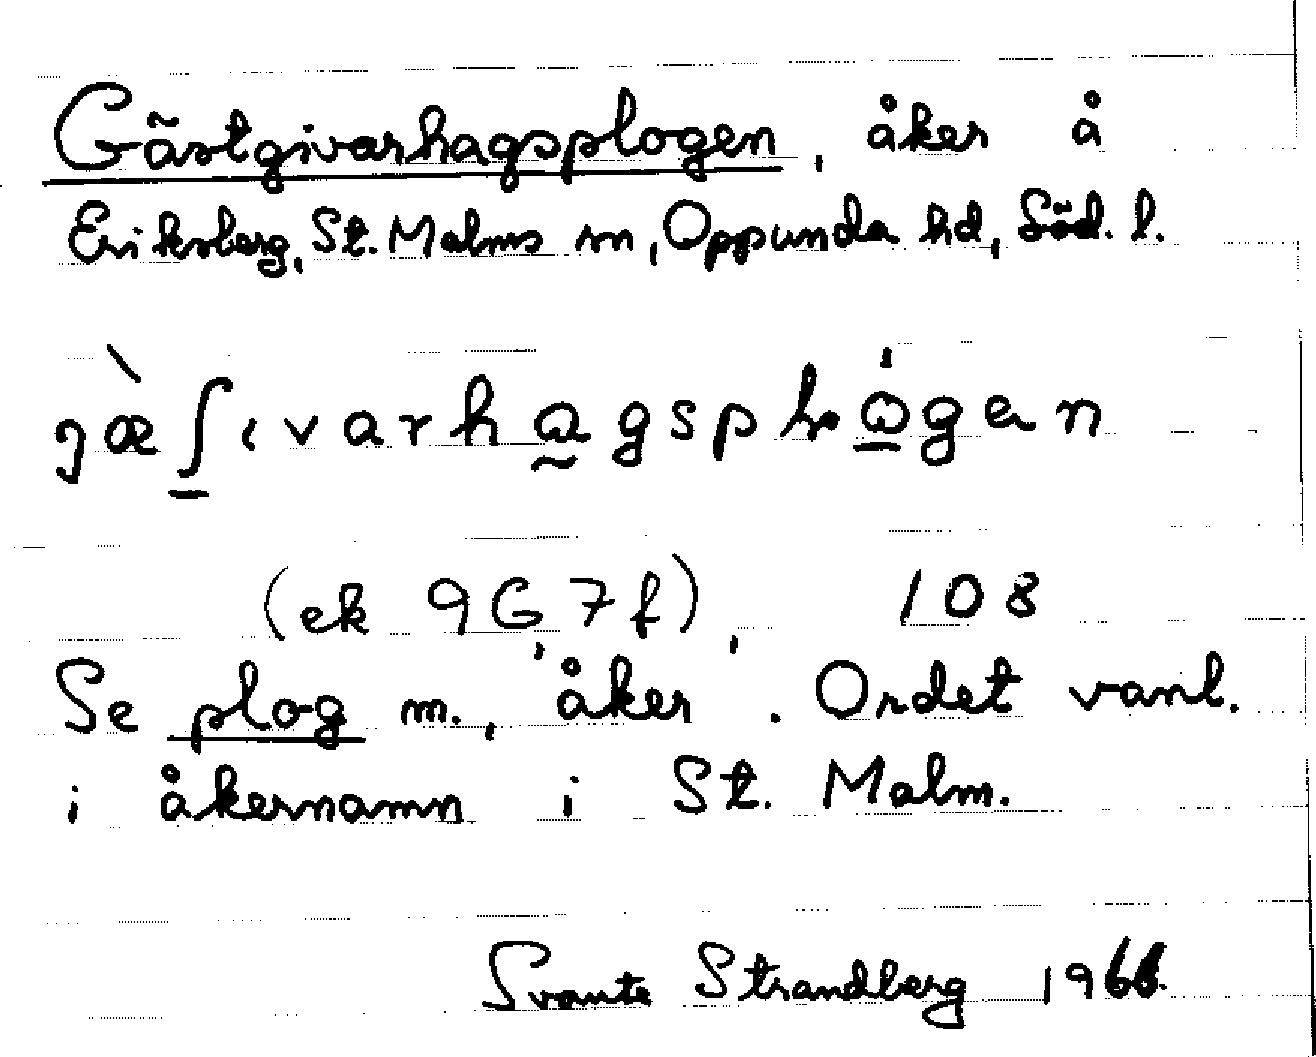 Gästgivarhagsplogen, åker å
Eriksberg, St. Malms sn, Oppunda hd, Söd. l.
(ek 9G7f), 108
Se plog m., 'åker'. Ordet vanl.
i åkernamn i St. Malm.
Svante Strandberg 1966.